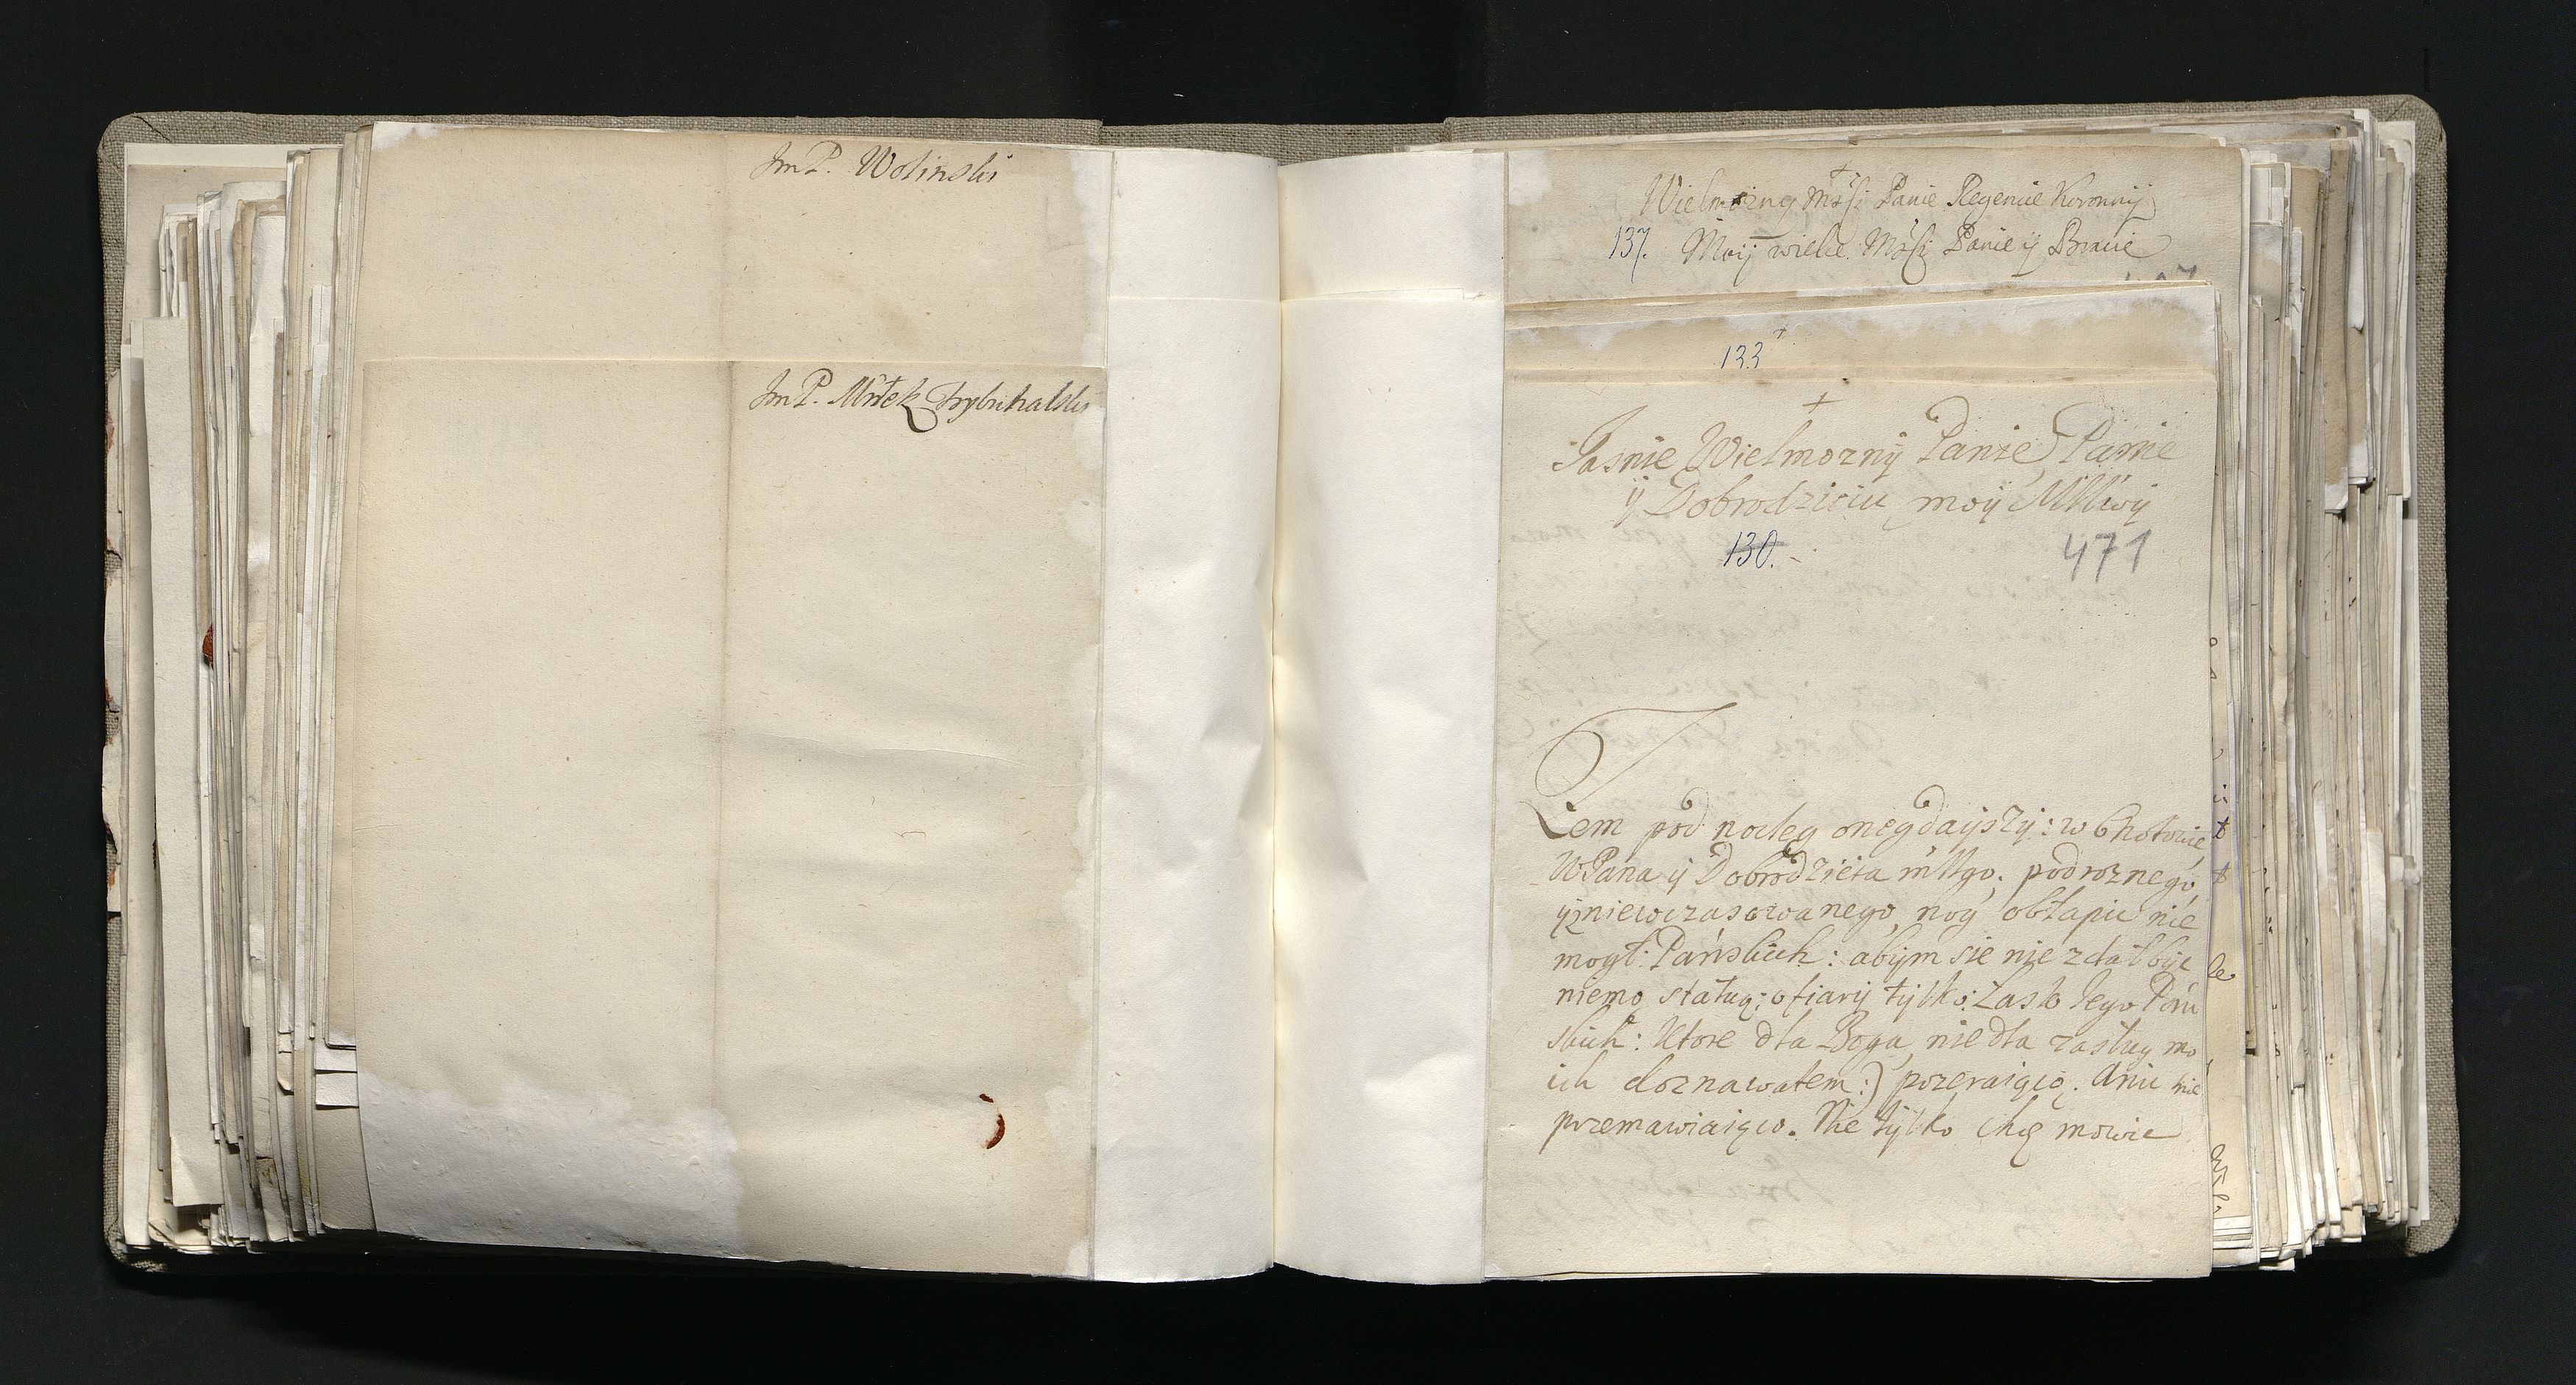 JmP. Wolinski
JmP. Młtek Trybunalski
Wielmożny Mśći Panie Regencie Koronny
137. Moij wielce Mśći Panie ij Bracie
133
Jasnie Wielmozny Panie, Panie
ij Dobrodzieiu moij Młłwy
130.
471
Zem pod nocleg onegdaijszÿ: w Chotowie
WPana ÿ Dobrodzieia młłgo. podroznego,
niewczasowanego, nog obłapic nie
mogł: Pańskich: abÿm sie nie zdał bÿc
niemo statuą: ofiary tÿlko: Łask Iego Pań
skich: Ktore dla Boga, nie dla zasług mo
ich doznawałem:) pozeraiącą. Aniu nie
przemawiaiąco. Nie tÿlko chcę mowic